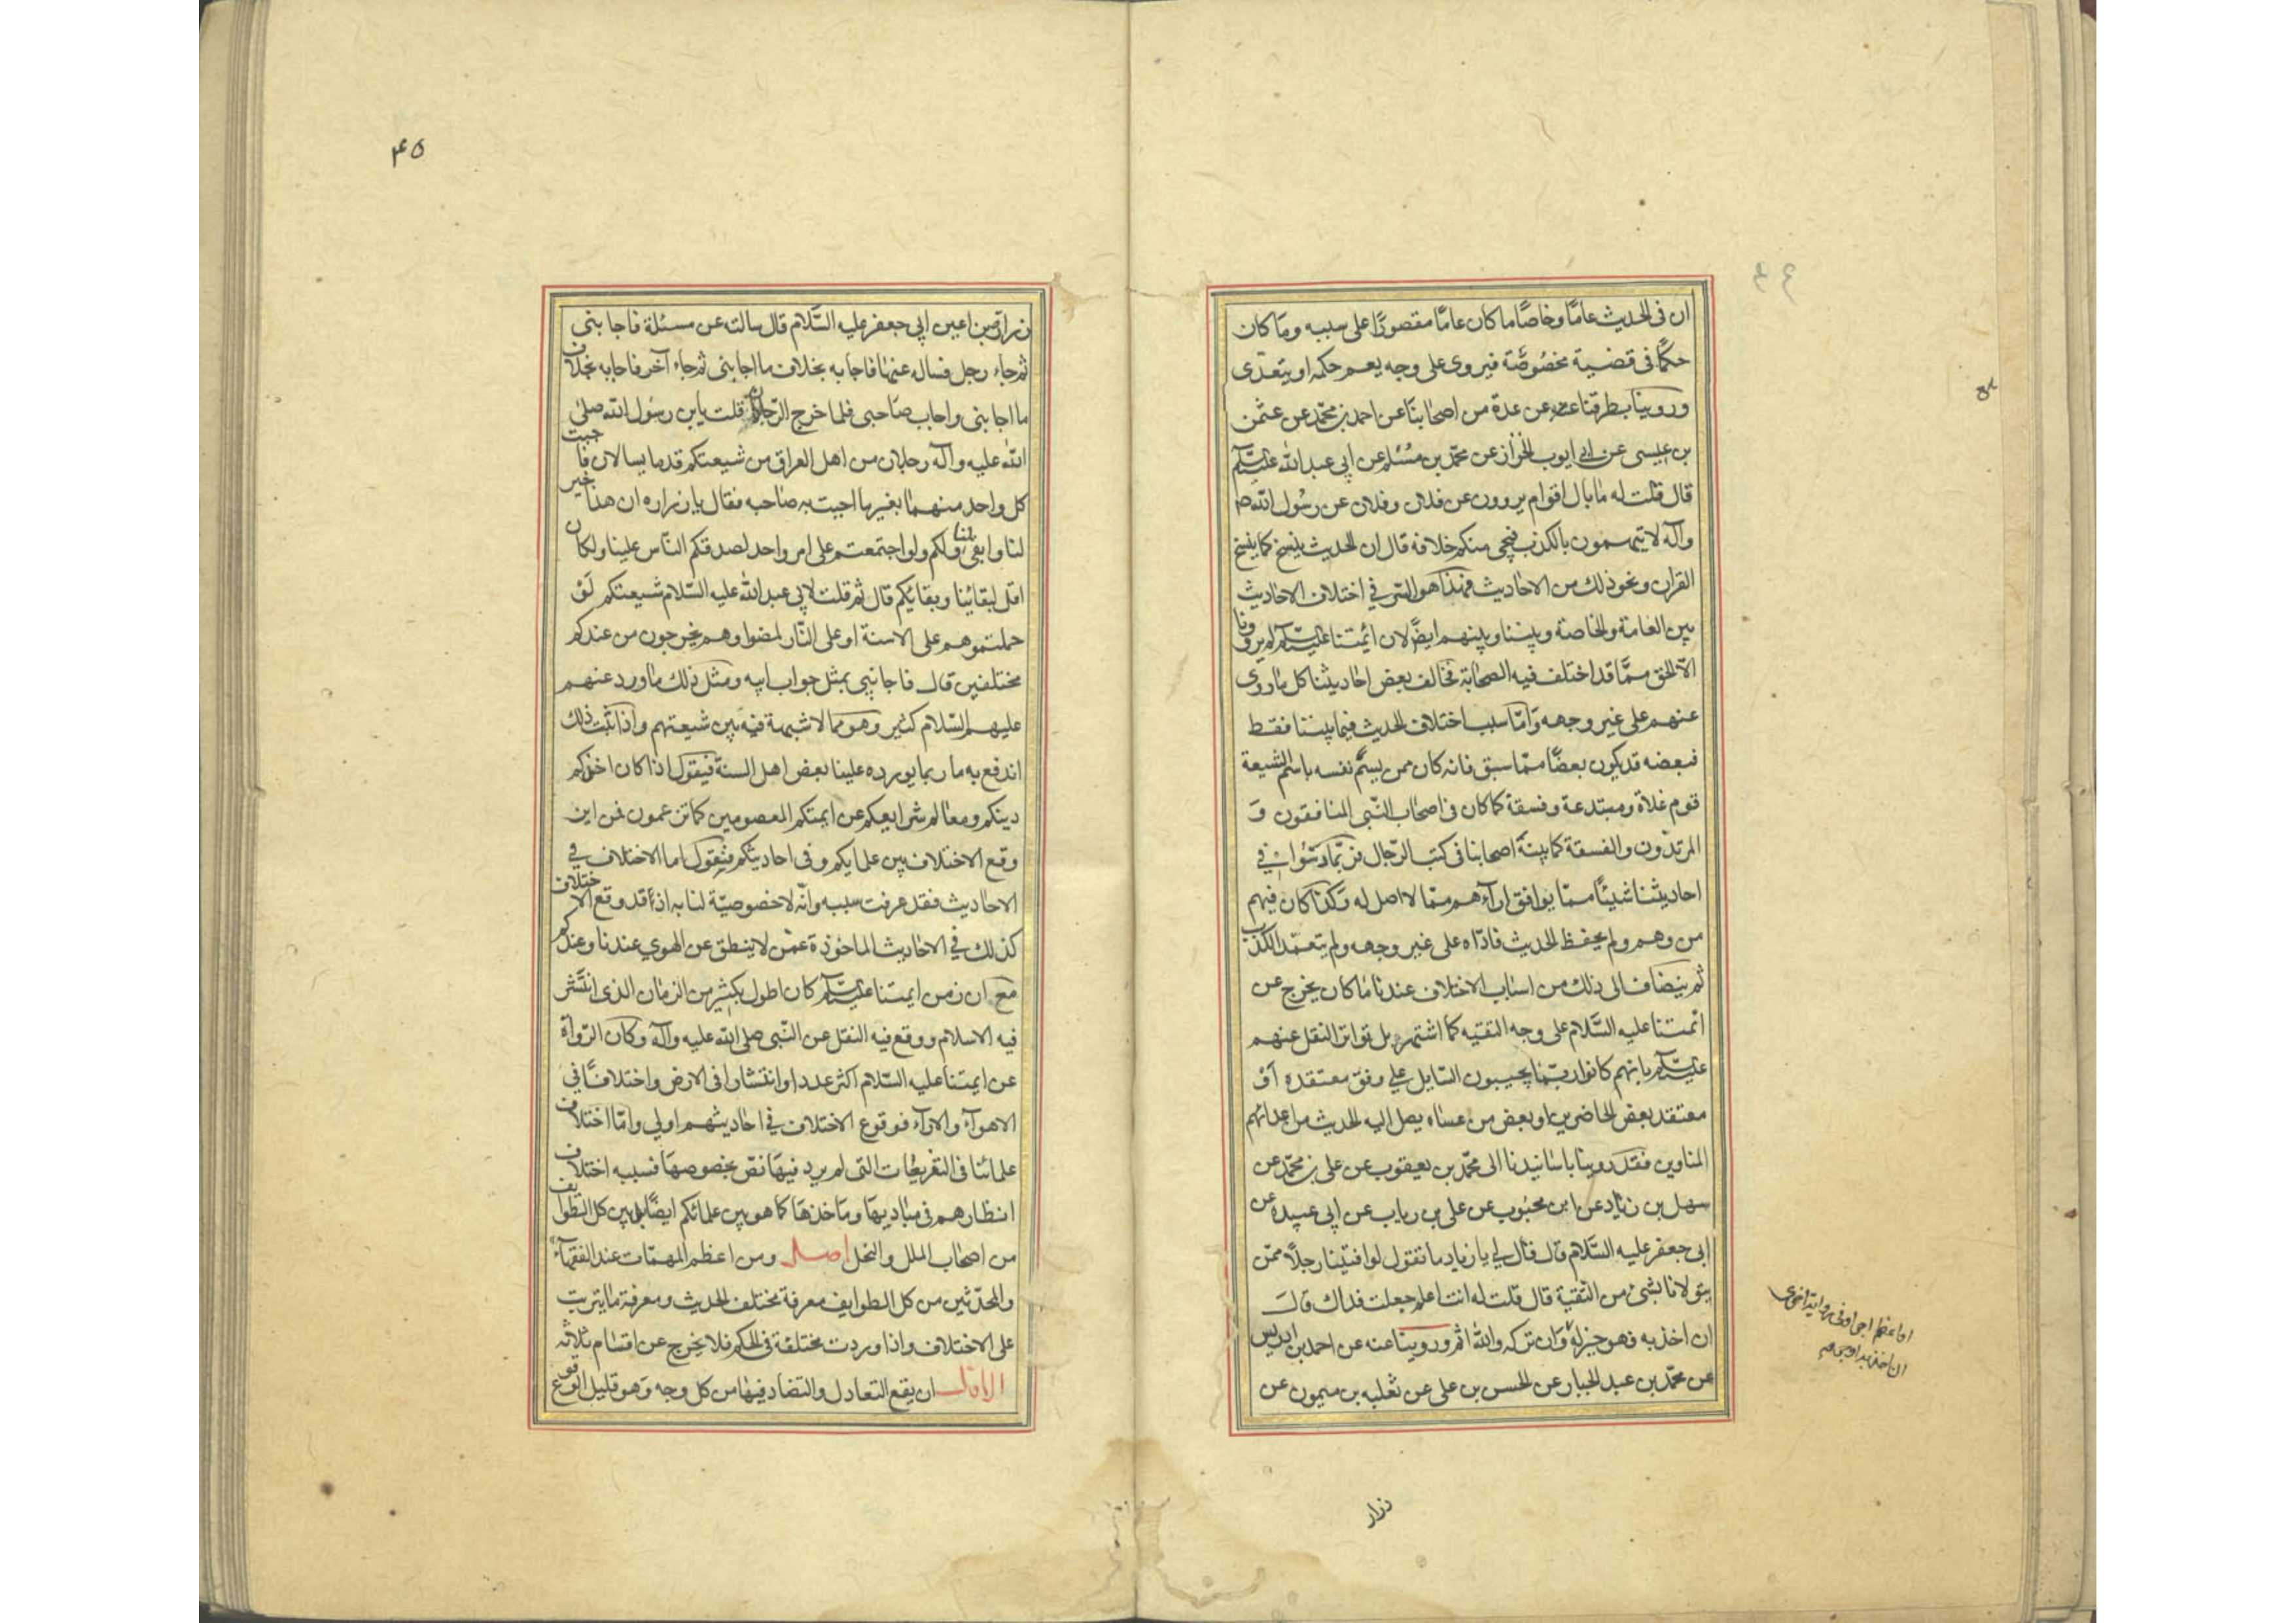 ان فى الحديث عامّا وخاصّا ما كان عامّا مقصورًا على سببه وما كان
حكمًا فى قضية مخصُوصَّة فيروى على وجه يعم حكمه او يتعدّى
وروينا بطرقنا عنه عن عدة من اصحابنا عن احمد بن محمّد عن عثمن
بن عيسى عن ابى ايوب الخزاز عن محمّد بن مُسْلم عن ابى عبد الله عليه السّلم
قال قلت له ما بال اقوام يروون عن فلان وفلان عن رسُول الله ص
وآله لا يتهمون بالكذب فيجى منكم خلافه قال ان الحديث ينسخ كما ينسخ
القران ونحو ذلك من الاحاديث فهذا هو السّر في اختلاف الاحاديث
بين العامة والخاصة وبيننا وبينهم ايضًا لان ائمتنا عليهم السّلم لم يرونا
الاّ الحق ممّا قد اختلف فيه الصحابة فخالف بعض احاديثنا كل ما روى
عنهم على غير وجهه وَامّا سبب اختلاف الحديث فيما بيننا فقط
فبعضه قد يكون بعضًا ممّا سبق فانه كان ممن يسمّ نفسه باسم الشيعة
قوم غلاة ومبتدعة وفسقة كما كان فى اصحاب النّبى المنافقون وَ
المرتدّون والفسقة كما بينهَ اصحابنا فى كتب الرّجال فربّما دسّوا فى
احاديثنا شيئًا ممّا يوافق اراءهم ممّا لا اصل له وَكذا كان فيهم
من وهم ولم يحفظ الحديث فادّاه على غير وجهه ولم يتعمّد الكذب
ثم ينضاف الى ذلك من اسباب الاختلاف عندنا ما كان يخرج عن
ائمتنا عليه السَّلام على وجه التقيه كما اشتهر بل تواتر النقل عنهم
عليهم السّلم بانهم كانوا ربّما يجيبون السّايل على وفق معتقده اَوْ
معتقد بعض الحاضرين او بعض من عساه يصل اليه الحديث من اعدائهم
المناوين فقد روينا باسانيدنا الى محمّد بن يعقوب عن على بن محمّد عن
سهل بن زياد عن ابن محبُوب عن على بن رياب عن ابى عبيدة عن
ابى جعفر عليه السَّلام قال قال لي يا زياد ما تقول لو افتينا رجلاً ممّن
يتولانا بشئ من التقية قال قلت له انت اعلم جعلت فداك قال
ان اخذ به فهو خير له وان تركه والله اثم وروينا عنه عن احمد بن ادريس
عن محمّد بن عبد الجبار عن الحسن بن على عن ثعلبه بن ميمون عن
او اعظم اجرا وفى رواية اخرى
ان اخذ به اوجر
زرار
٤٥
زرارة بن اعين ابى جعفر عليه السَّلام قال سالته عن مسئلة فاجابنى
ثم جاء رجل فساله عنها فاجابه بخلاف ما اجابنى ثم جاء آخر فاجابه بخلاف
ما اجابنى واجاب صَاحبى فلما خرج الرّجلان قلت يابن رسُول الله صلى
الله عليه وآله رجلان من اهل العراق من شيعتكم قدما يسالان فاجبت
كل واحد منهما بغير ما اجبت به صَاحبه فقال يا زراره ان هذا خير
لنا وابقى لنا ولكم ولو اجتمعتم على امر واحد لصدقكم النّاس علينا ولكان
اقل لبقائنا وبقايكم قال ثم قلت لابى عبد الله عليه السّلام شيعتكم لَوْ
حملتموهم على الاسنة او على النّار لمضوا وهم يخرجون من عندكم
مختلفين قال فاجابنى بمثل جواب ابيه ومثل ذلك ما ورد عنهم
عليهم السّلام كثير وهو مما لا شبهة فيه بين شيعتهم واذا ثبت ذلك
اندفع به ما ربما يورده علينا بعض اهل السنة فيقول اذا كان اخذكم
دينكم ومعَالم شرايعكم عن ايمتكم المعصومين كما تزعمون فمن اين
وقع الاختلاف بين علمايكم وفى احاديثكم فنقول اما الاختلاف في
الاحاديث فقد عرفت سببه وانّه لا خصوصيّة لنا به اذ قد وقع الاختلاف
كذلك في الاحاديث الماخوذة عمّن لا ينطق عن الهوى عندنا وعندكم
مع ان زمن ايمتنا عليهم السّلم كان اطول بكثير من الزمان الذى انتشر
فيه الاسلام ووقع فيه النقل عن النّبى صلى الله عليه وآله وكان الرّواة
عن ايمتنا عليه السّلام اكثر عددا وانتشارا فى الارض واختلافًا فى
الاهوآء والارآء فوقوع الاختلاف في احاديثهم اولى وامّا اختلاف
علمائنا فى التفريعَات التى لم يرد فيهَا نصّ بخصوصهَا فسببه اختلاف
انظارهم فى مباديها ومَاخذهَا كما هو بين علمائكم ايضًا بل بين كل الطوايف
من اصحاب الملل والنحل اصل ومن اعظم المهمّات عند الفقهآء
والمحدّثين من كل الطوايف معرفة مختلف الحديث ومعرفة ما يترتب
على الاختلاف واذا وردت مختلفة فى الحكم فلا يخرج عن اقسَام ثلاثه
الاول ان يقع التعادل والتضاد فيها من كل وجه وَهو قليل الوقوع